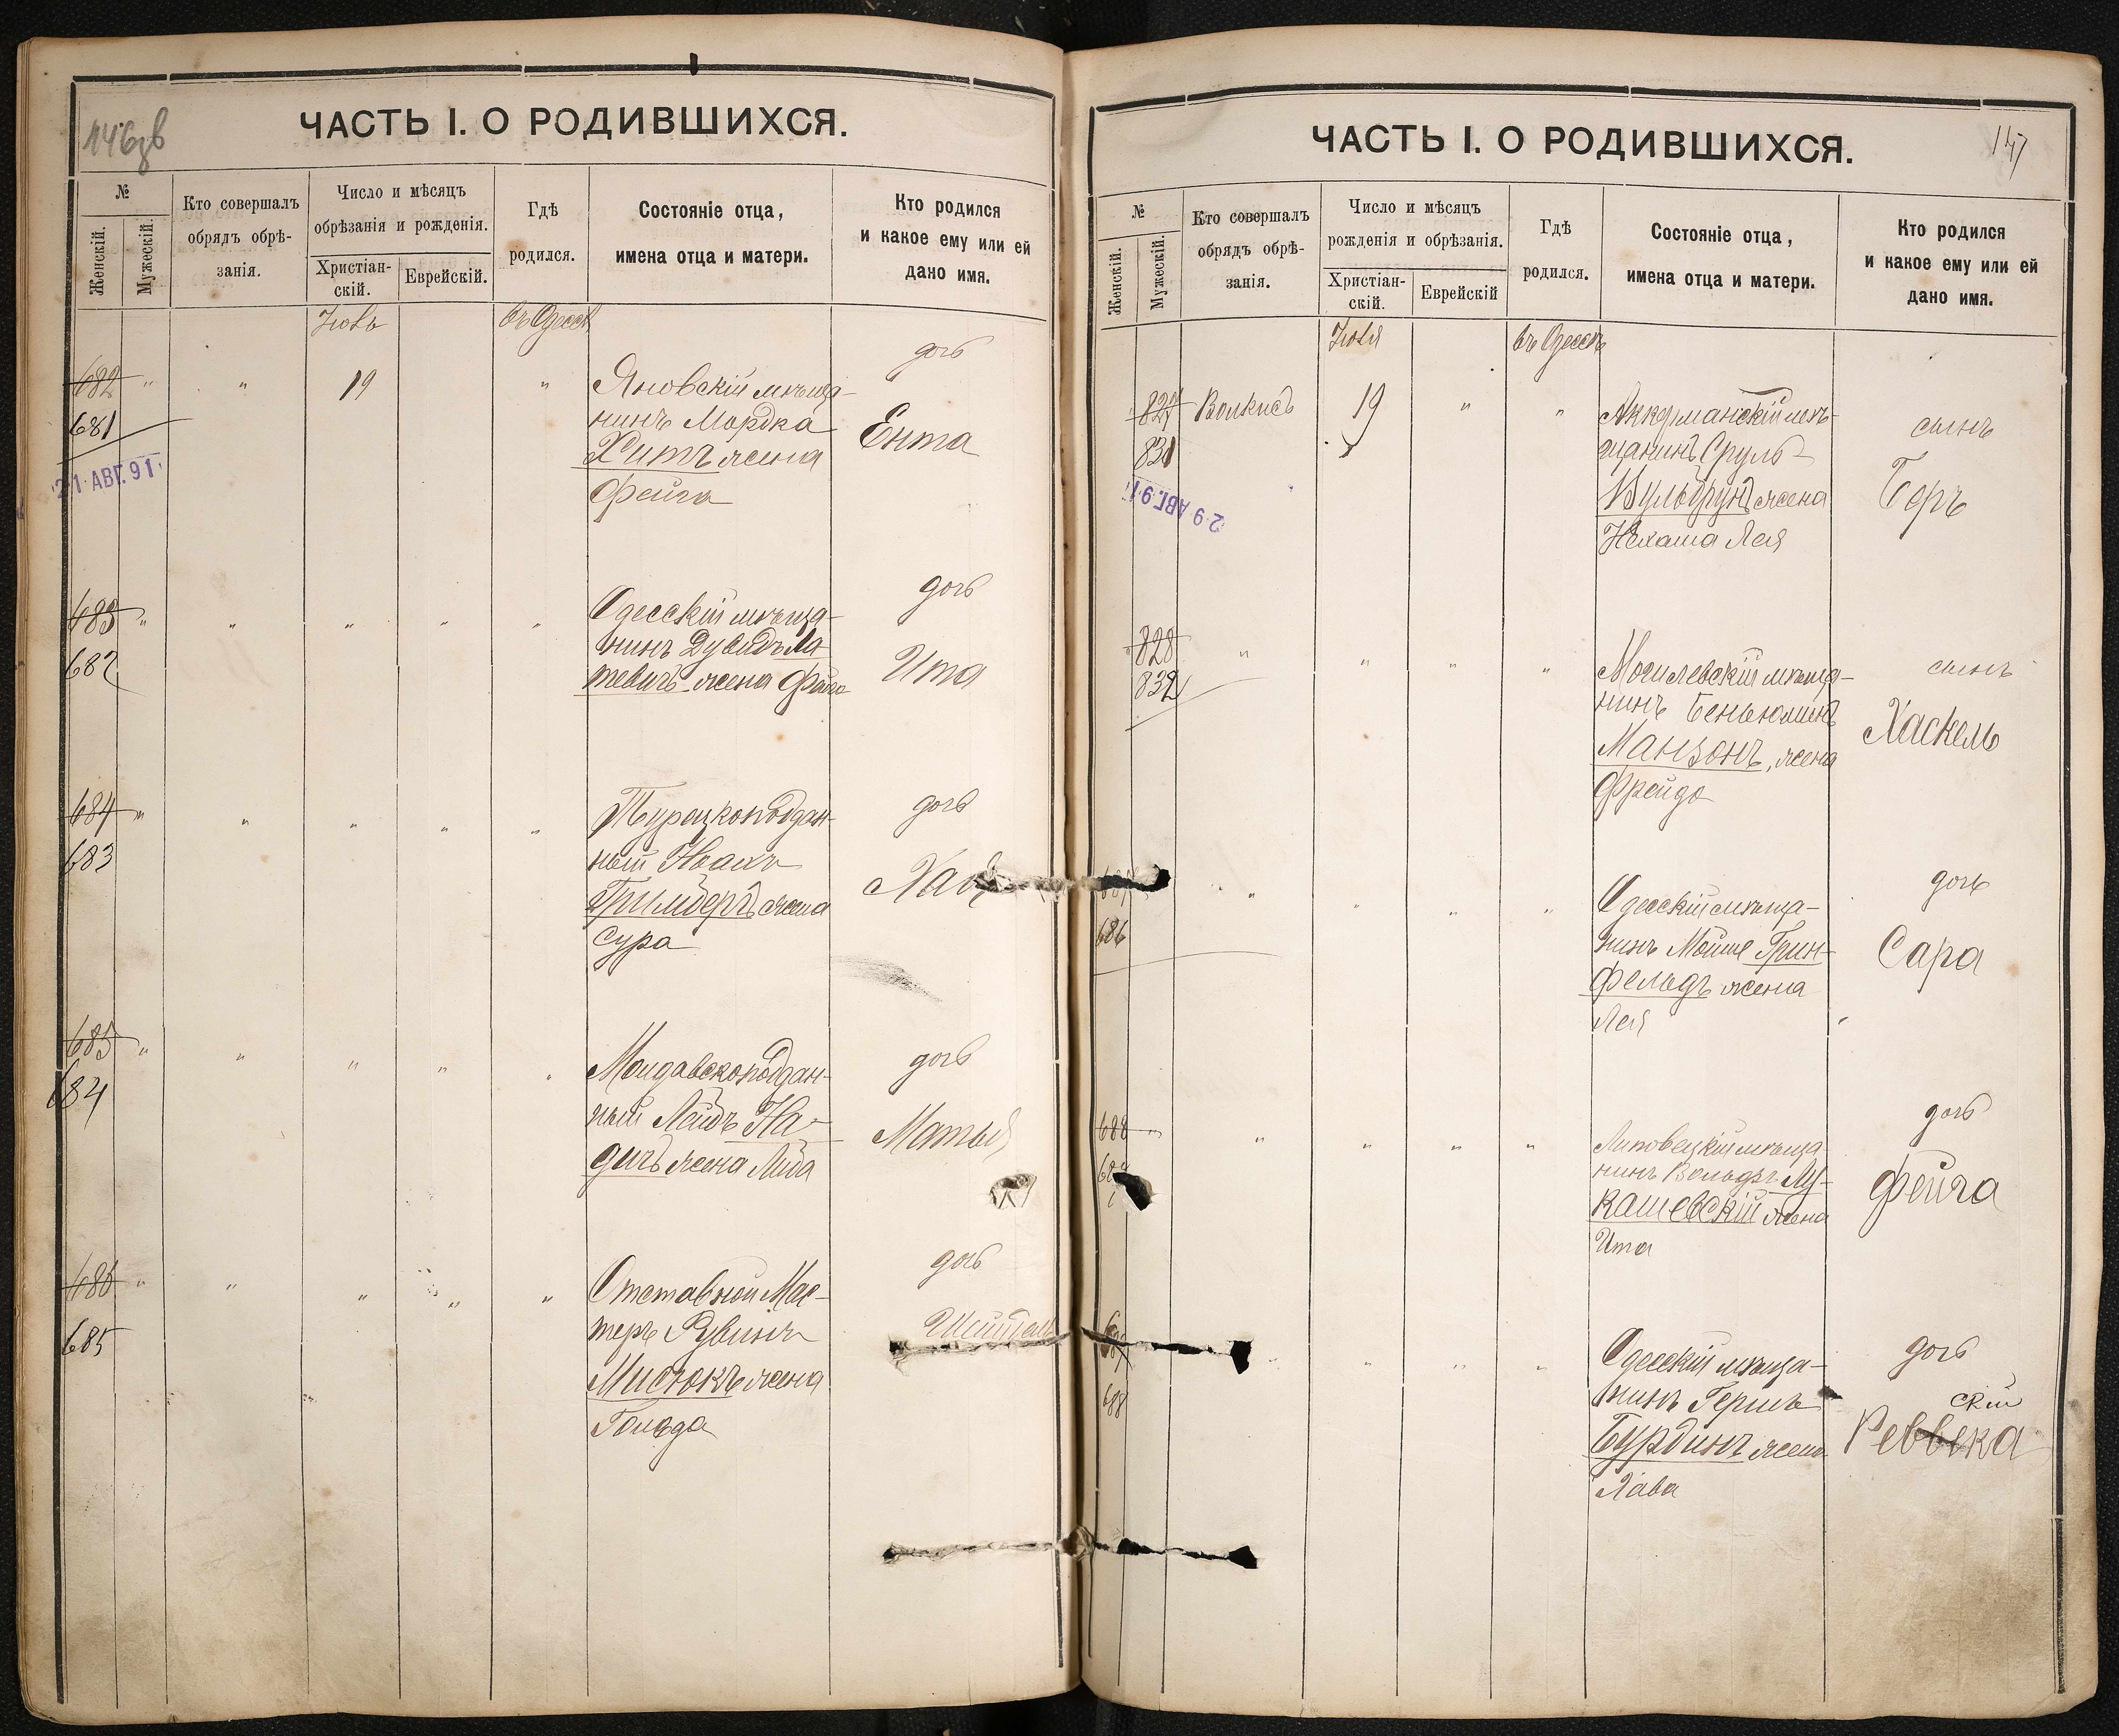 146зв
ЧАСТЬ I. О РОДИВШИХСЯ.
№
Женскій.
Мужескій.
Кто совершалъ
обрядъ обрѣ-
занія.
Число и мѣсяцъ
обрѣзанія и рожденія.
Христіан-
скій.
Еврейскій.
Гдѣ
родился.
Состояніе отца,
имена отца и матери.
Кто родился
и какое ему или ей
дано имя.
Іюль
въ Одессѣ
682 " " 19 "
681
21 АВГ. 91
Яновскій мѣща-
нинъ Мордка
Хитъ жена
Фейга
дочь
Ента
683 " " " " "
682
Одесскій мѣща-
нинъ Дувидъ Ма
тевичъ жена Фейга
дочь
Ита
684 " " " " "
683
Турецкоподдан-
ный Ноахъ
жена
Сура
дочь
685 " " " " "
684
Молдавскоподдан-
ный Лейбъ На-
дичъ жена Либа
дочь
Матья
686 " " " " "
685
Отставной Мас-
теръ Рувинъ
Мисюкъ жена
Гольда
дочь
147
ЧАСТЬ I. О РОДИВШИХСЯ.
№
Женскій.
Мужескій.
Кто совершалъ
обрядъ обрѣ-
занія.
Число и мѣсяцъ
рожденія и обрѣзанія.
Христіан-
скій.
Еврейскій
Гдѣ
родился.
Состояніе отца,
имена отца и матери.
Кто родился
и какое ему или ей
дано имя.
Іюля
въ Одессѣ
827 19 " "
831
29 АВГ. 91
Аккерманскій мѣ-
щанинъ Сруль
жена
Нехама Лея
сынъ
Беръ
828 " " " "
832
Могилевскій мѣща-
нинъ Беньюминъ
Манзонъ, жена
Фрейда
сынъ
Хаскель
687 " " " "
686
Одесскій мѣща-
нинъ Мойше Грин-
фельдъ жена
Лея
дочь
Сара
688 " " " " "
Липовецкій мѣща
нинъ Вольфъ Лу-
кашевскій жена
Ита
дочь
Фейга
" " " "
688
Одесскій мѣща-
нинъ Гершъ
Бурдинъ жена
Хава
дочь
скій
Реввека